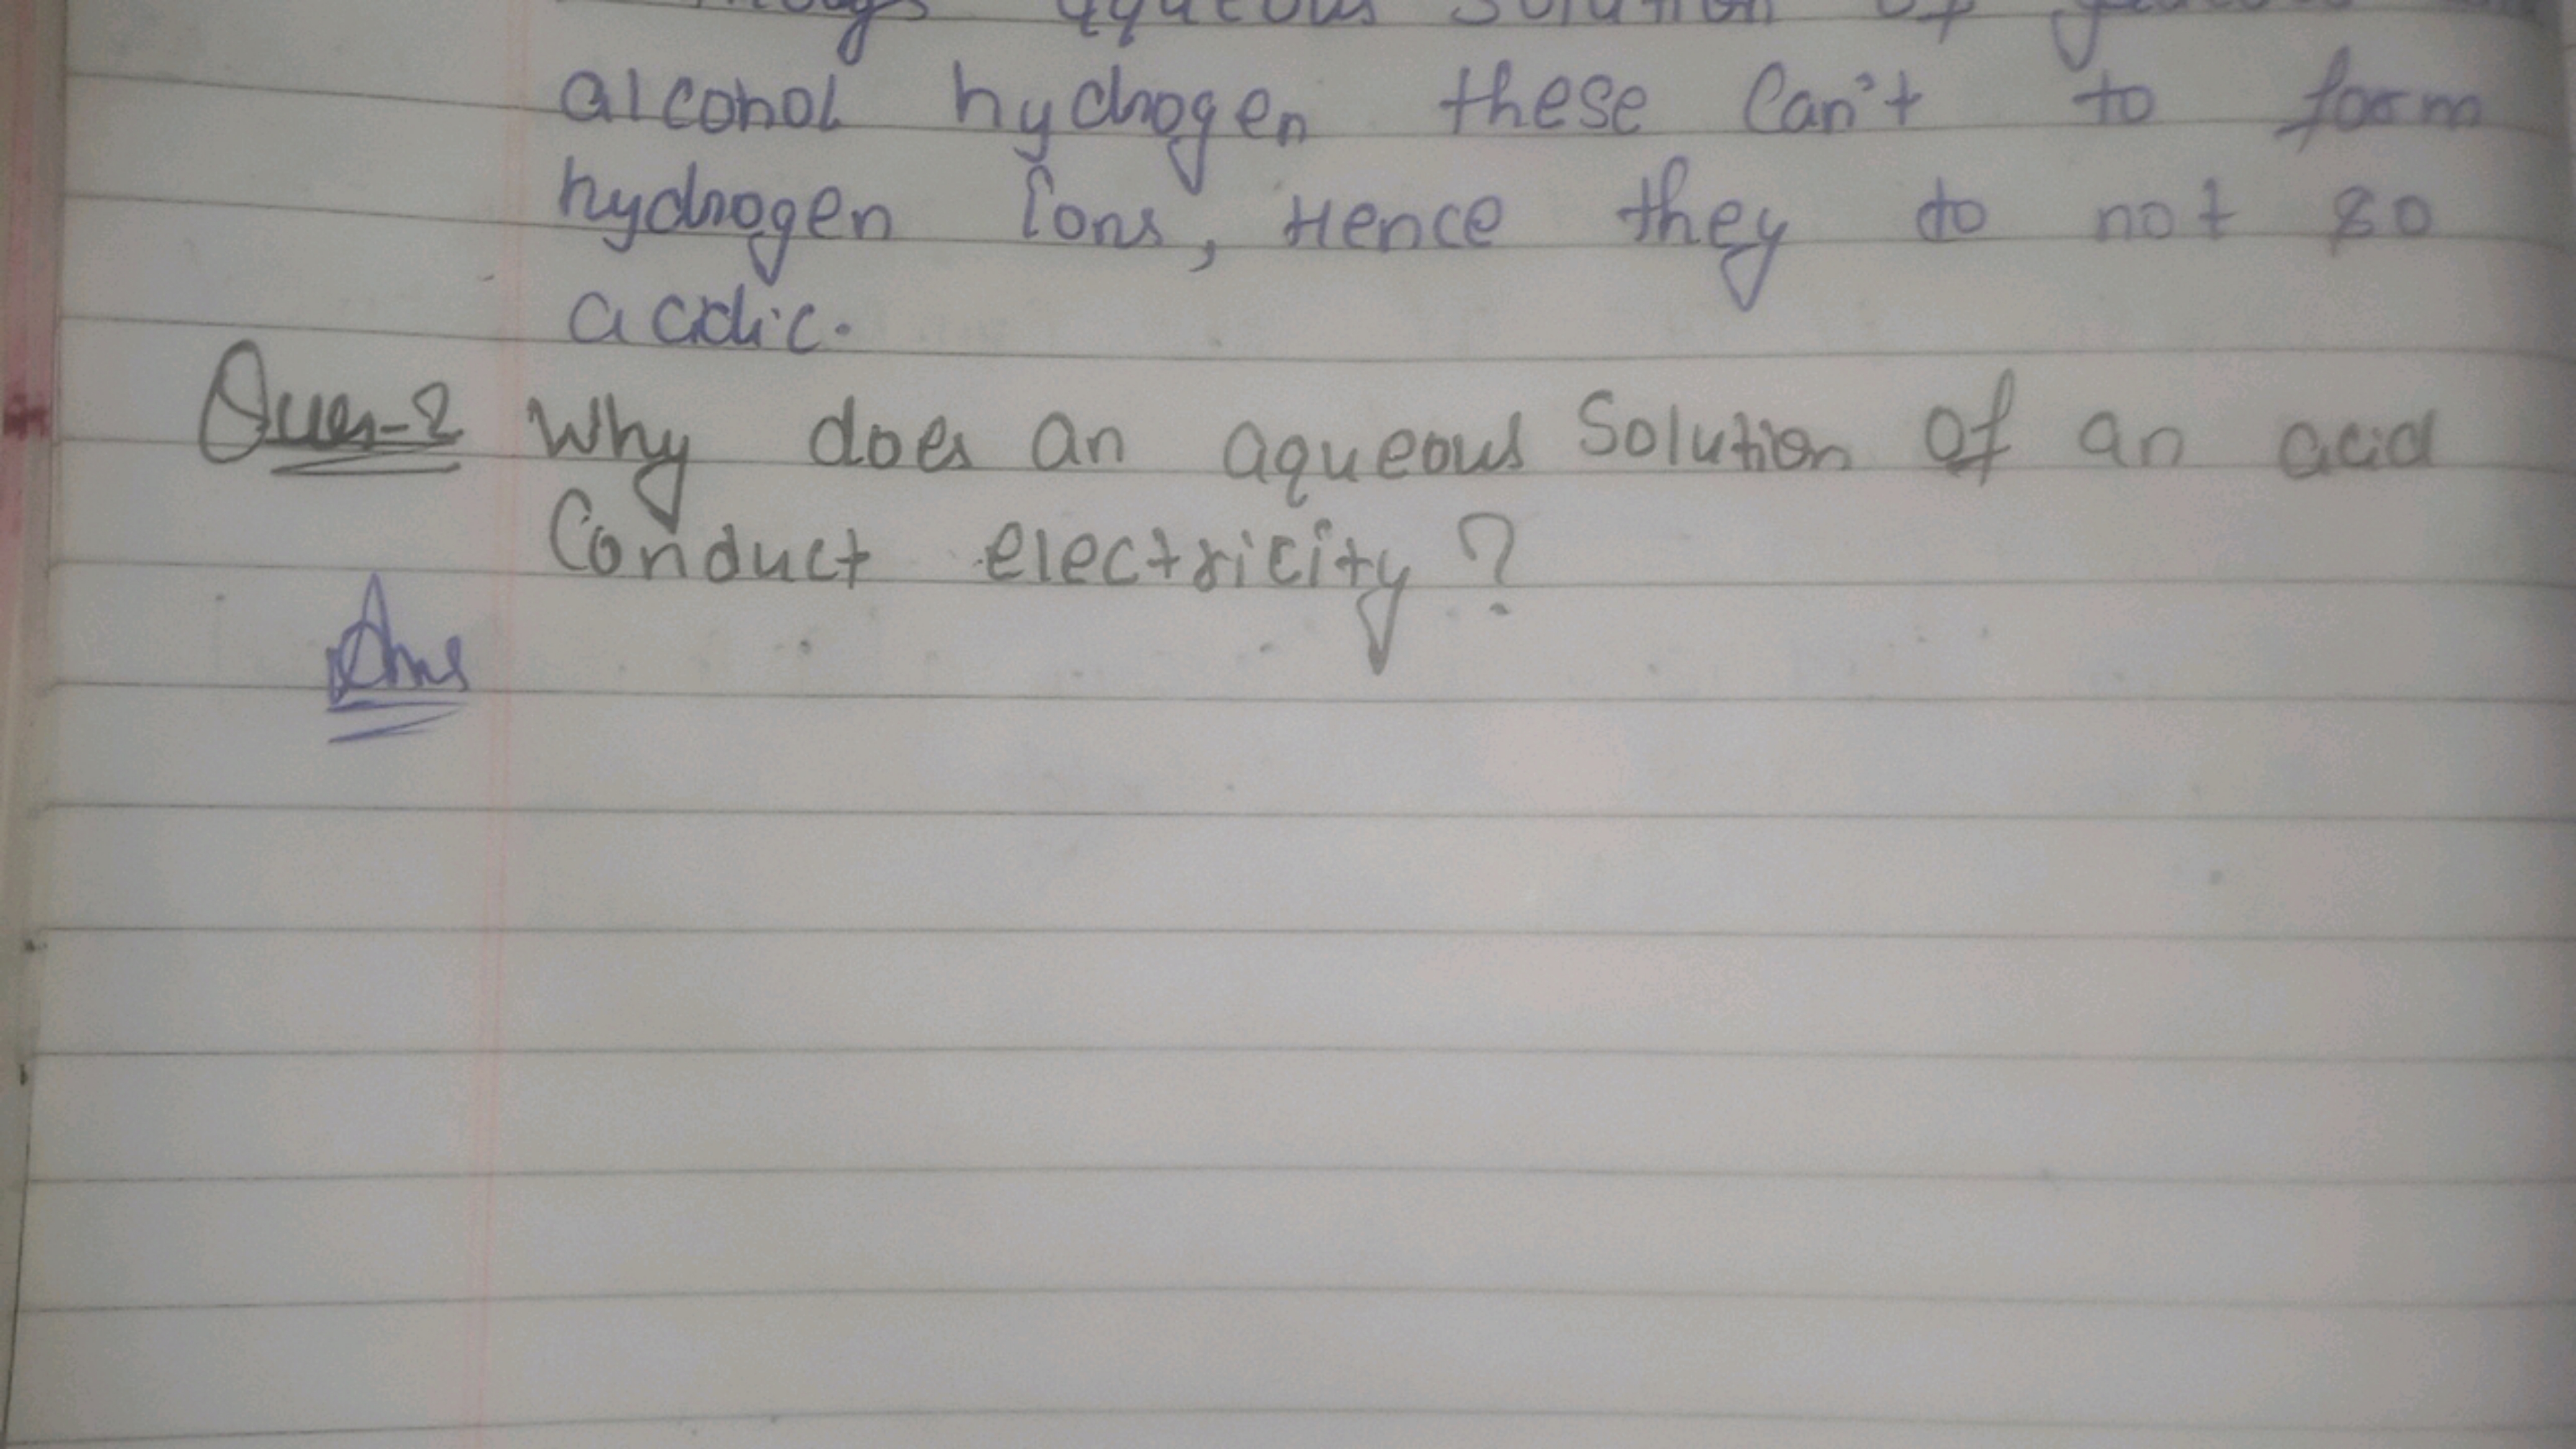 aqueous solution of
alcohol hydrogen these can't to form
hydrogen Ions, Hence they do not so
acidic.
Ques-2 Why does an aqueous Solution of an acid
Conduct electricity?
Ans